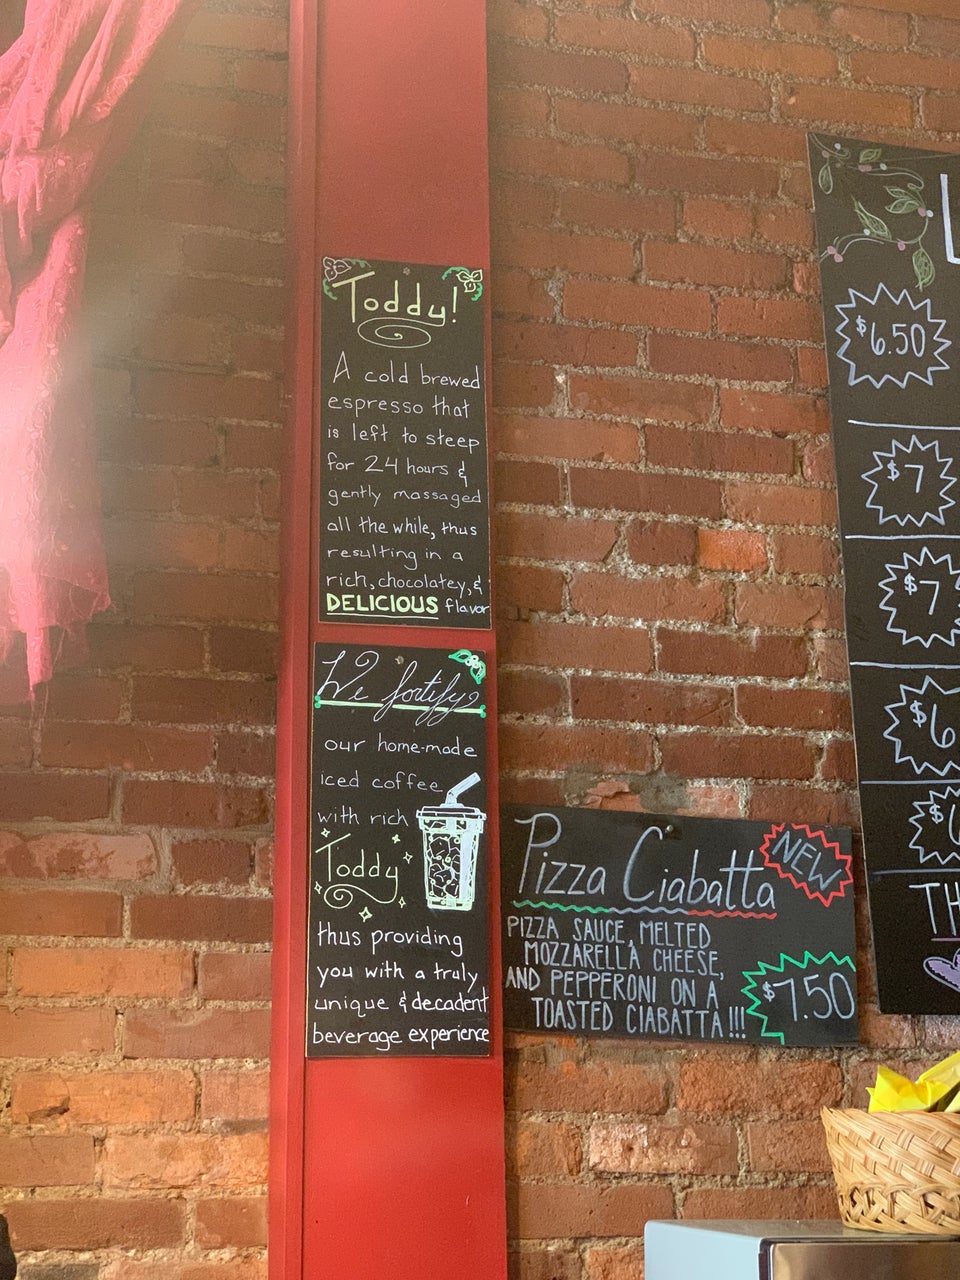 Toddy!
A cold brewed
espresso that
is left to steep
for 24 hours &
gently massaged
all the while, thus
resulting in a
rich, chocolatey, &
DELICIOUS flavor
We fortify
our home-made
iced coffee
with rich
Toddy
thus providing
you with a truly
unique & decadent
beverage experience
Pizza Ciabatta
NEW
PIZZA SAUCE, MELTED
MOZZARELLA CHEESE,
AND PEPPERONI ON A
TOASTED CIABATTA!!!
$7.50
$6.50
$7
$7
$6